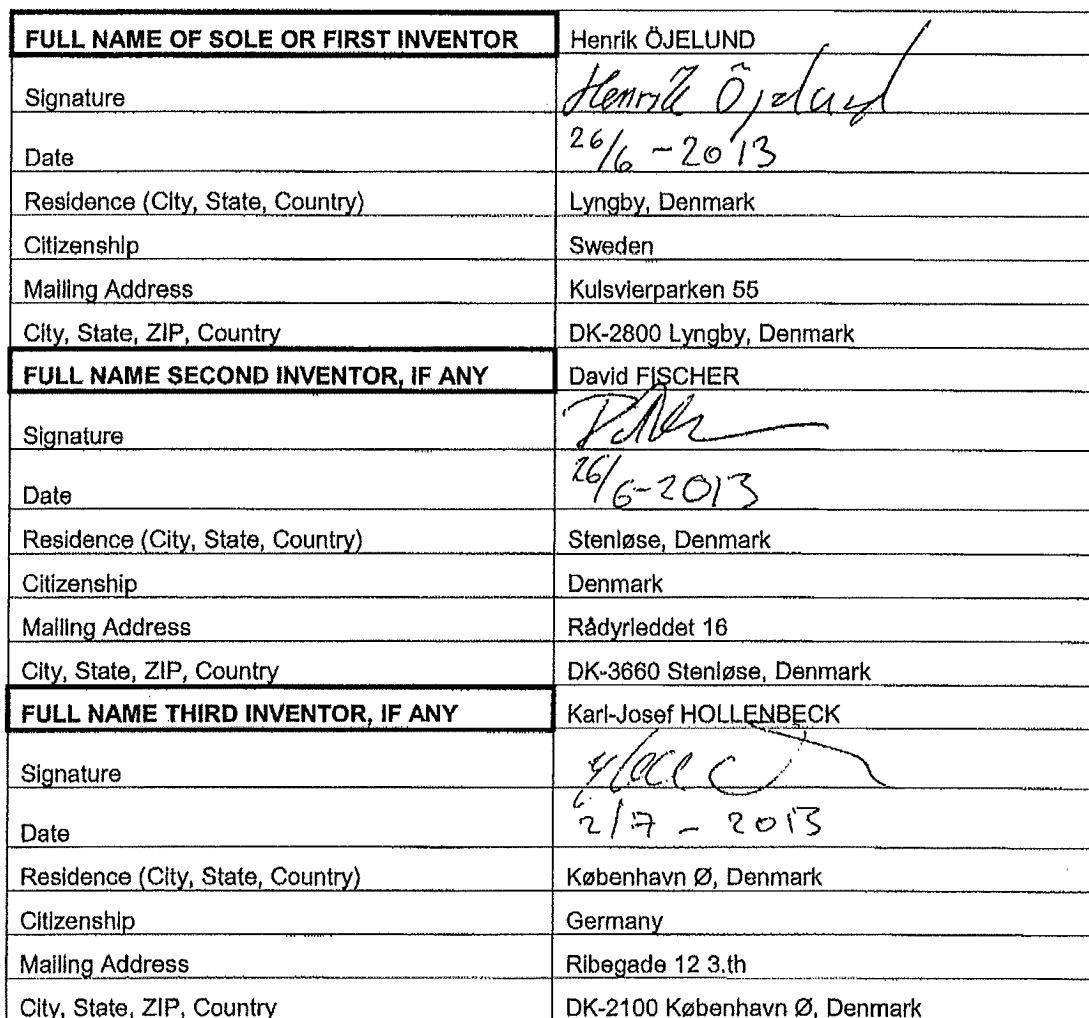 FULL NAME OF SOLE OR FIRST INVENTOR Henrik ÖJELUND
Signature Henrik Öjelund
Date 26/6 - 2013
Residence (City, State, Country) Lyngby, Denmark
Citizenship Sweden
Mailing Address Kulsvierparken 55
City, State, ZIP, Country DK-2800 Lyngby, Denmark
FULL NAME SECOND INVENTOR, IF ANY David FISCHER
Signature
Date 26/6-2013
Residence (City, State, Country) Stenløse, Denmark
Citizenship Denmark
Mailing Address Rådyrleddet 16
City, State, ZIP, Country DK-3660 Stenløse, Denmark
FULL NAME THIRD INVENTOR, IF ANY Karl-Josef HOLLENBECK
Signature
Date 2/7 - 2013
Residence (City, State, Country) København Ø, Denmark
Citizenship Germany
Mailing Address Ribegade 12 3.th
City, State, ZIP, Country DK-2100 København Ø, Denmark